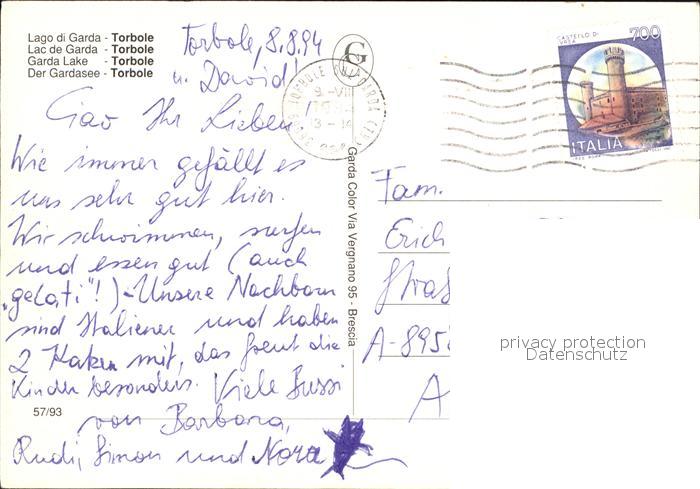 Lago di Garda - Torbole
Lac de Garda - Torbole
Garda Lake - Torbole
Der Gardasee - Torbole
Torbole, 8.8.94
G
CASTELLO DI
IVREA
700
ITALIA
Ciao Ihr Lieben
u. David!
Wie immer gefällt es
uns sehr gut hier.
Wir schwimmen, surfen
und essen gut (auch
"gelati"!) - Unsere Nachbarn
sind Italiener und haben
2 Katzen mit, das freut die
Kinder besonders. Viele Bussi
von Barbara,
Rudi, Simon und Nora
57/93
Garda Color Via Vergnano 95 - Brescia
Fam.
Erich
Straß
A-895
A
privacy protection
Datenschutz